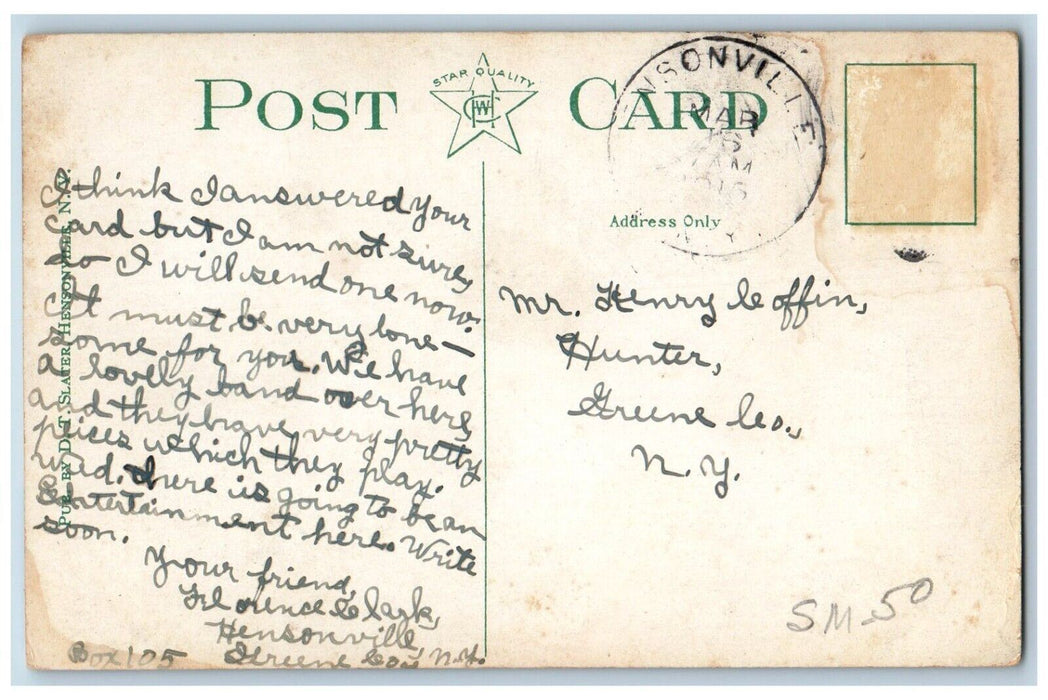 POST CARD
STAR QUALITY
NSONVILLE
MAR
AM
Address Only
PUB. BY D. T. SLATER, HENSONVILLE, N.Y.
I think I answered your
card but I am not sure,
so I will send one now.
It must be very lone—
some for you. We have
a lovely band over here,
and they have very pretty
pieces which they play.
there is going to be an
Entertainment here. Write
soon.
Your friend,
Florence Clark,
Hensonville,
Greene Co., N.Y.
Box 105
Mr. Henry Coffin,
Hunter,
Greene Co.,
N.Y.
SM-50